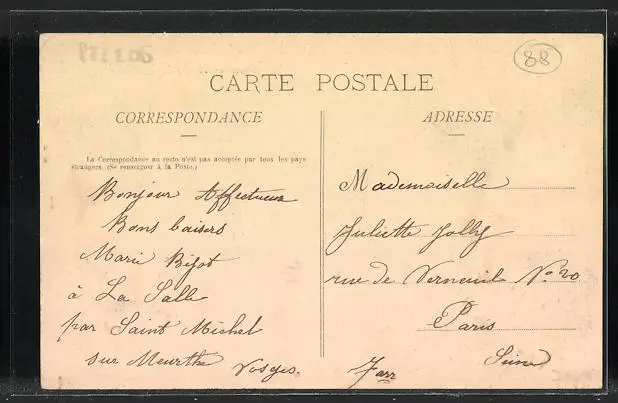 88
CARTE POSTALE
CORRESPONDANCE
La Correspondance au recto n'est pas acceptée par tous les pays
étrangers. (Se renseigner à la Poste.)
Bonjour Affectueux
Bons baisers
Marie Bigot
à La Salle
par Saint Michel
sur Meurthe Vosges.
ADRESSE
Mademoiselle
Juliette Jolly
rue de Verneuil No 20
Paris
Seine